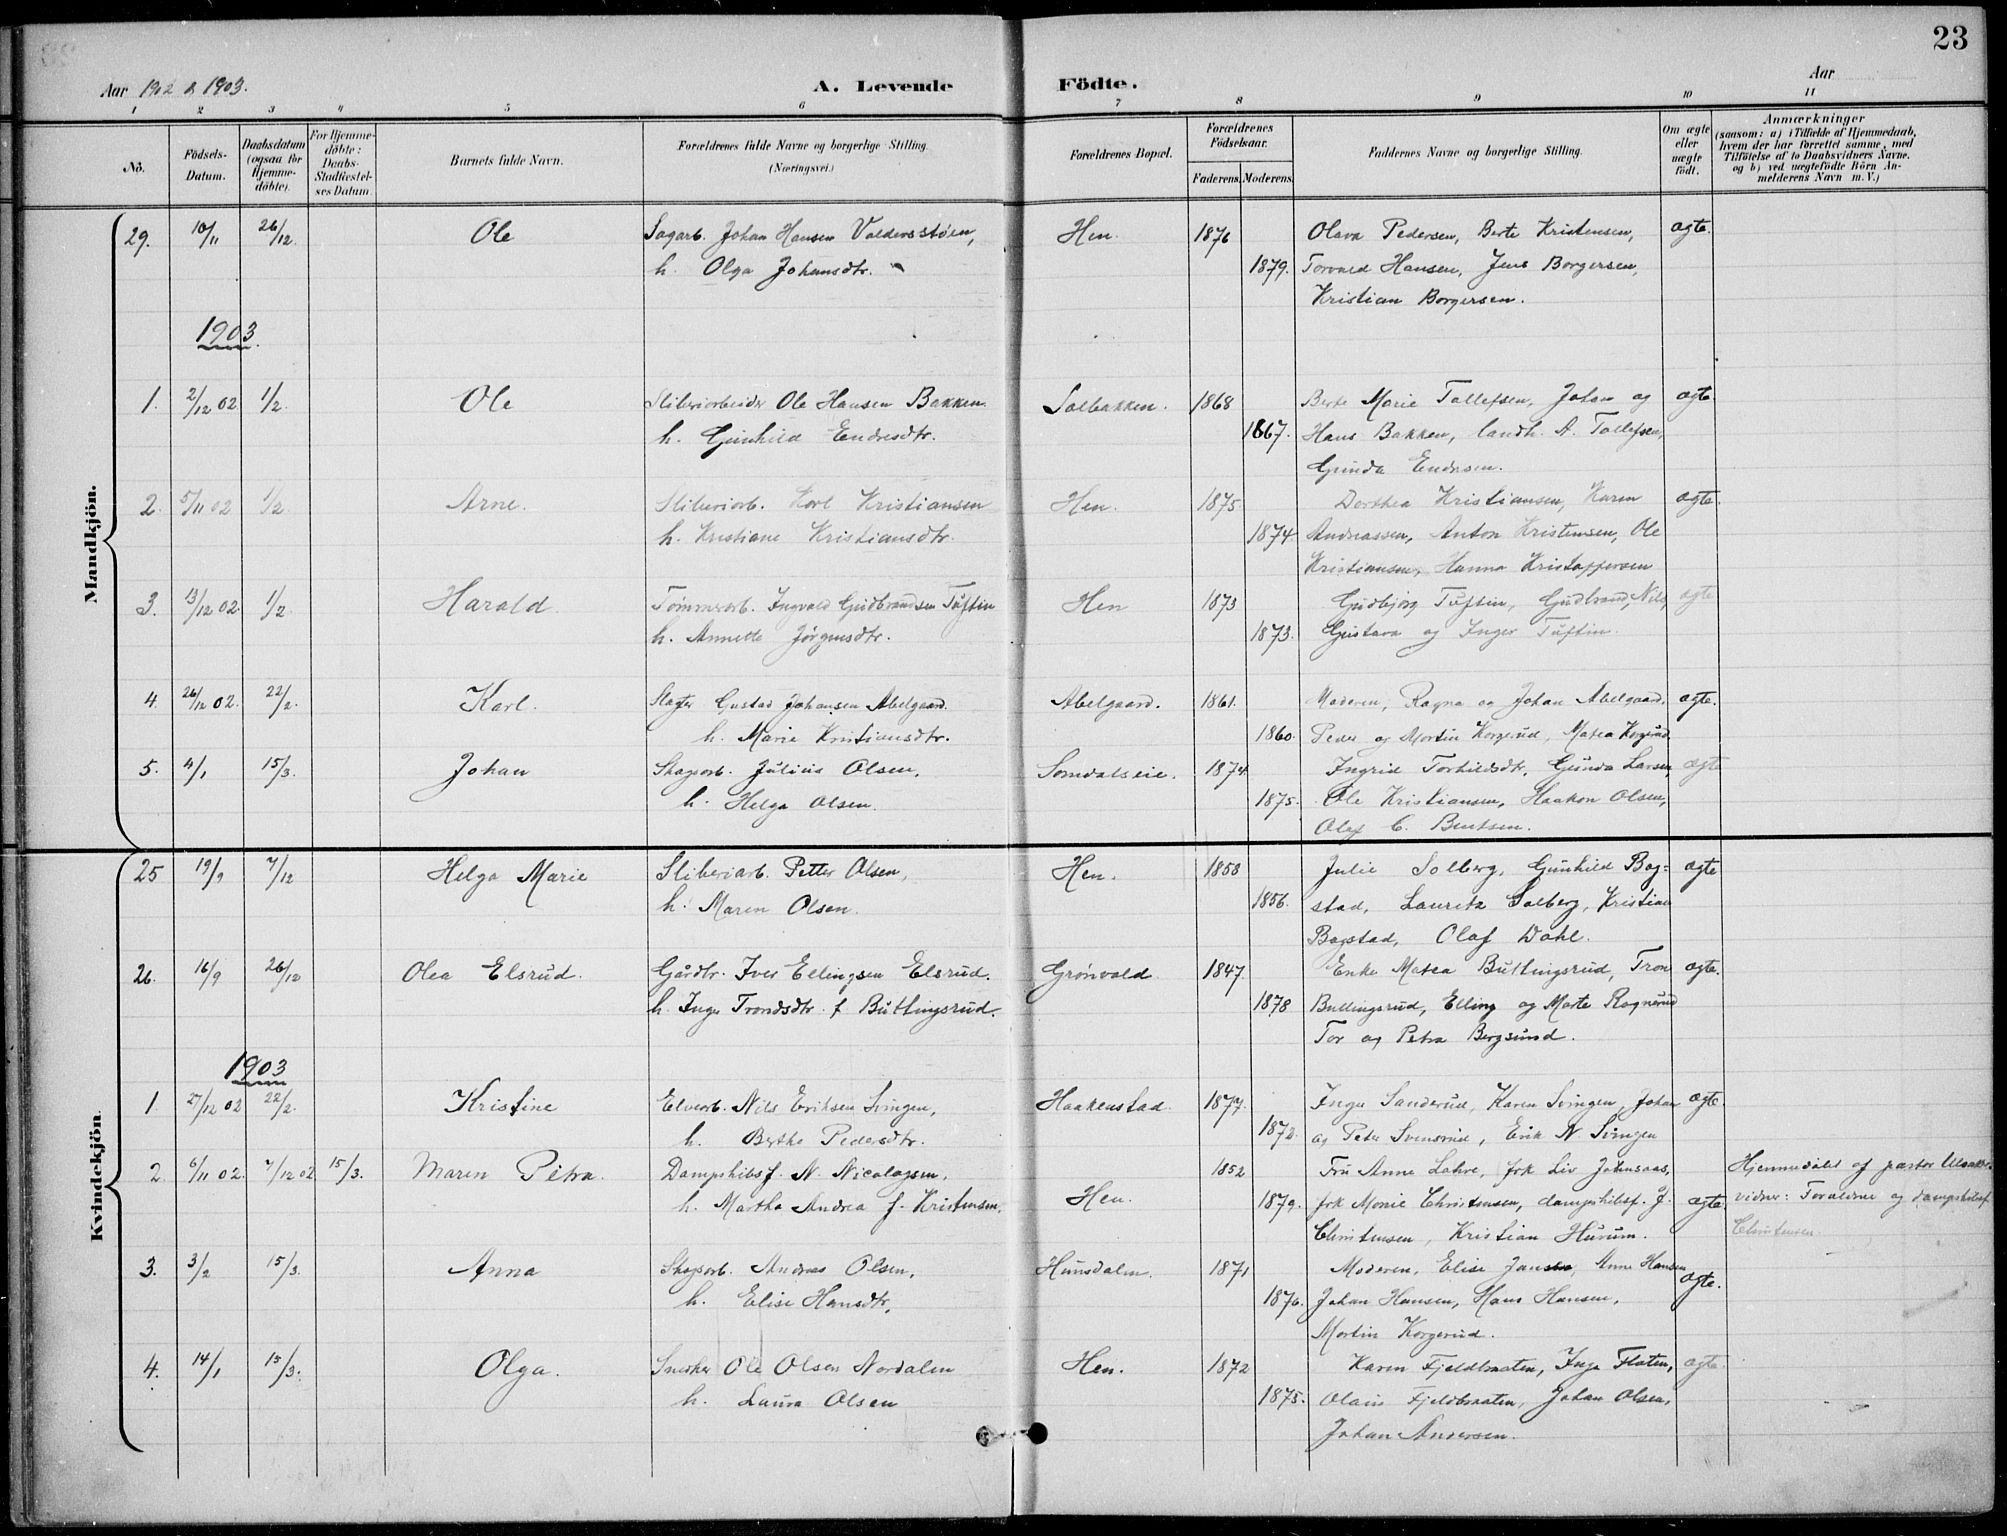 23
Aar 1902 & 1903.
A. Levende Födte.
Aar
1 2 3 4 5 6 7 8 9 10 11
No.
Födsels-Datum.
Daabsdatum (ogsaa for Hjemme-döbte).
For Hjemme-döbte: Daabs-Stadfæstel-ses Datum.
Barnets fulde Navn.
Forældrenes fulde Navne og borgerlige Stilling. (Næringsvei.)
Forældrenes Bopæl.
Forældrenes Födselsaar.
Faderens. Moderens.
Faddernes Navne og borgerlige Stilling.
Om ægte eller uægte født.
Anmærkninger
(saasom: a) i Tilfælde af Hjemmedaab,
hvem der har forrettet samme, med
Tilföielse af to Daabsvidners Navne,
og b) ved uægtefödte Börn An-
melderens Navn m. V.)
Mandkjön.
29. 10/11 26/12. Ole Sagarb. Johan Hansen Valdersstøen, Hen. 1876 Olava Pedersen, Berte Kristensen, ægte.
h. Olga Johansdtr. 1879. Torvald Hansen, Jens Borgersen,
Kristian Borgersen.
1903.
1. 2/12 02 1/2. Ole Sliberiarbeider Ole Hansen Bakken. Solbakken. 1868 Berte Marie Tollefsen, Johan og ægte
h. Gunhild Endresdtr. 1867. Hans Bakken, landh. A. Tollefsen,
Gunda Endresen.
2. 5/11 02 1/2 Arne. Sliberiarb. Karl Kristiansen Hen. 1875 Dorthea Kristiansen, Karen ægte.
h. Kristiane Kristiansdtr. 1874. Andreassen, Anton Kristensen, Ole
Kristiansen, Hanna Kristoffersen
3. 13/12 02. 1/2 Harald. Tømmerarb. Ingvald Gudbrandsen Tuftin Hen 1873 Gudbjørg Tuftin, Gudbrand, Nils, ægte
h. Annette Jørgensdtr. 1873. Gustava og Inger Tuftin.
4. 26/12 02. 22/2. Karl. Slagter Gustad Johansen Abelgaard. Abelgaard. 1861. Moderen, Ragna og Johan Abelgaard, ægte.
h. Marie Kristiansdtr. 1860. Peder og Martin Korgerud, Matea Korgerud
5. 4/1 15/3. Johan Skogsarb. Julius Olsen. Somdalseie. 1874. Ingrid Torhildsdtr, Gunda Larsen, ægte
h. Helga Olsen. 1875. Ole Kristiansen, Haakon Olsen,
Olaf C. Bentsen.
Kvindekjön.
25 19/9 7/12 Helga Marie Sliberiarb. Petter Olsen, Hen. 1858 Julie Solberg, Gunhild Bag- ægte
h. Maren Olsen. 1856. stad, Lauritz Solberg, Kristian
Bagstad, Olaf Dahl.
26. 16/9 26/12 Olea Elsrud. Gårdbr. Iver Ellingsen Elsrud. Grønvold 1847. Enke Matea Buttingsrud, Tron ægte.
h. Inga Trondsdtr. f. Buttingsrud. 1878 Buttingsrud, Elling og Marte Rognerud
Tor og Petra Bergsund.
1903
1. 27/12 02 22/2. Kristine Elvearb. Nils Eriksen Svingen, Haakenstad. 1877. Inga Sanderud, Karen Svingen, Johan ægte.
h. Berthe Pedersdtr. 1872. og Peter Svensrud, Erik N Svingen
2. 6/11 02. 7/12 02 15/3. Maren Petra. Dampskibsf. N. Nicolaysen, 1852 Fru Anne Lohre, frk Liv Johnsaas, Hjemmedøbt af pastor
h. Martha Andrea f. Kristensen. Hen. 1879. frk Monie Christensen, dampskibsf. J. ægte vidner: Forældrene og dampskibsf.
Christensen, Kristian Hurum. Christensen.
3. 3/2 15/3. Anna Skogsarb. Andreas Olsen, Hunsdalen. 1871 Moderen, Elise Jansen, Anne Hansen ægte.
h. Elise Hansdtr, 1876. Johan Hansen, Hans Hansen,
Martin Korgerud.
4. 14/1 15/3. Olga. Snedker Ole Olsen Nordalen Hen. 1872 Karen Fjeldbraaten, Inga Flaten, ægte
h. Laura Olsen 1875. Olaus Fjeldbraaten, Johan Olsen,
Johan Andersen.